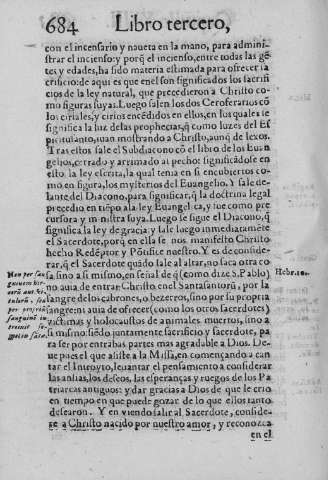 684 Libro tercero,
con el incensario y naueta en la mano, para adminis-
trar el incienso: y porq̃ el incienso, entre todas las gẽ
tes y edades, ha sido materia estimada para ofrecer sa
crificio: de aqui es que enel son significados los sacrifi
cios de la ley natural, que precedieron a Christo co-
mo figuras suyas. Luego salen los dos Ceroferarios cõ
los ciriales, y cirios encẽdidos en ellos, en los quales se
significa la luz de las prophecias, q̃ como luzes del Es
piritu santo, yuan mostrando a Christo, aunq̃ de lexos.
Tras estos sale el Subdiacono cõ el libro de los Euan
gelios, cerrado y arrimado al pecho: significãdose en
esto la ley escrita, la qual tenia en si encubiertos co-
mo en figura, los mysterios del Euangelio. Y sale de-
lante del Diacono, para significar, q̃ la doctrina legal
precedio en tiẽpo ala ley Euangelica, y fue como pre
cursora y ministra suya. Luego se sigue el Diacono, q̃
significa la ley de gracia: y sale luego inmediatamẽte
el Sacerdote, porq̃ en ella se nos manifesto Christo
hecho Redẽptor y Põtifice nuestro. Y es de conside-
rar, q̃ el Sacerdote quãdo sale al altar, no saca otra co
sa sino a si mismo, en señal de q̃ (como dize S. Pablo)
no auia de entrar Christo enel Santa santorũ, por la
sangre de los cabrones, o bezerros, sino por su propia
sangre: ni auia de ofrecer (como los otros sacerdotes)
victimas y holocaustos de animales muertos, sino a
si mismo: siẽdo juntamente sacrificio y sacerdote, pa
ra ser por entrabas partes mas agradable a Dios. De
ue pues el que assiste a la Missa, en començando a can
tar el Introyto, leuantar el pensamiento a considerar
las ansias, los deseos, las esperanças y ruegos de los Pa
triarcas antiguos: y dar gracias a Dios de que le crio
en tiempo en que puede gozar de lo que ellos tanto
desearon. Y en viendo salir al Sacerdote, conside-
re a Christo nacido por nuestro amor, y reconozca
en el
Non per san
guinem hir
corũ aut vi-
tulorũ, sed
per propriũ
sanguinẽ in
troiuit se
Hebr. 10.